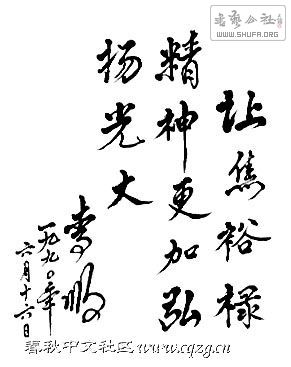 让焦裕禄
精神更加弘
扬光大
李鹏
一九九〇年
六月十六日
書藝公社
WWW.SHUFA.ORG
春秋中文社区www.cqzg.cn